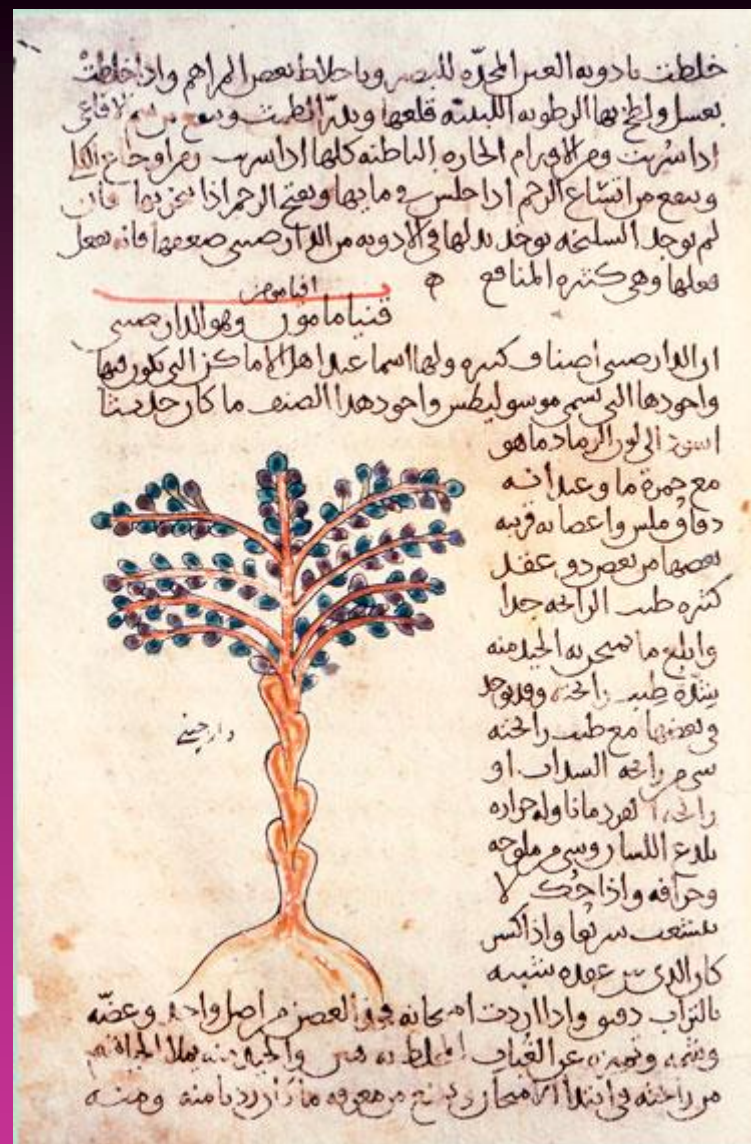 خلطت بادويه العين المحدّه للبصر وباخلاط بعض المراهم واذا خلطتْ
بعسل ولطخ بها الرطوبه اللبنيه قلعها ويدرّ الطمث وينفع من الافاعي
اذا شربت ومن الاورام الحاره الباطنه كلها اذا شربت ومن اوجاع الكلا
وينفع من اتساع الرحم اذا جلس في مايها ويفتح الرحم اذا بخر بها فان
لم يوجد السليخه يوخد بدلها في الادويه من الدار صيني ضعفها فانه يفعل
فعلها وهي كثيره المنافع
قنياماموں وهو الدار صيني
ان الدار صيني اصناف كثيره ولها اسما عند اهل الاماكن التي يكون فيها
واجودها التي تسمى موسوليطس واجود هدا الصنف ما كان حديثا
اسود الى لون الرماد ما هو
مع حمرة ما وعيدانه
دقاق ملس واغصانه قريبه
بعضها من بعض ذو عقد
كثيره طيب الرائحه جدا
وابلغ ما يمتحن به الجيد منه
شدّة طيب رائحته وقد يوجد
في بعضها مع طيب رائحته
شي من رائحه السداب او
رائحة القردمانا وله حراره
يلدع اللسان وشي من ملوحه
وحرافه واذا حُك لا
يتشعب سريعا واذا كسر
كان الذي بين عقده شبيه
دار چيني
بالتراب دقيق واذا اردت امتحانه فخذ الغصن من اصل واحد
من رائحته في ابتدا الامتحان من معرفه ما منه ومنه